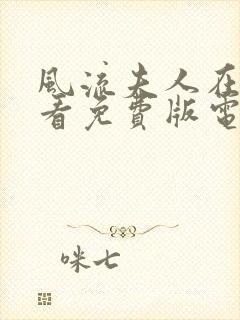 風流夫人在
看免費版電
咪七